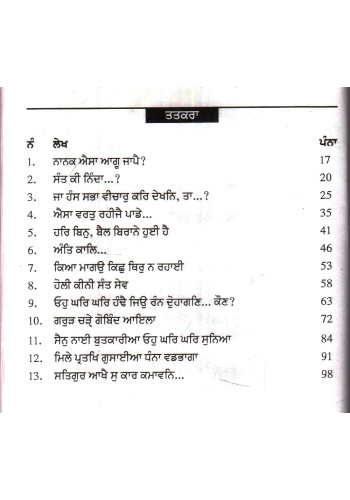 ਤਤਕਰਾ
ਨੰ ਲੇਖ ਪੰਨਾ
1. ਨਾਨਕ ਐਸਾ ਆਗੂ ਜਾਪੈ? 17
2. ਸੰਤ ਕੀ ਨਿੰਦਾ...? 20
3. ਜਾ ਹੰਸ ਸਭਾ ਵੀਚਾਰੁ ਕਰਿ ਦੇਖਨਿ, ਤਾ...? 25
4. ਐਸਾ ਵਰਤੁ ਰਹੀਜੈ ਪਾਡੇ... 35
5. ਹਰਿ ਬਿਨੁ, ਬੈਲ ਬਿਰਾਨੇ ਹੁਈ ਹੈ 41
6. ਅੰਤਿ ਕਾਲਿ... 46
7. ਕਿਆ ਮਾਗਉ ਕਿਛੁ ਥਿਰੁ ਨ ਰਹਾਈ 53
8. ਹੋਲੀ ਕੀਨੀ ਸੰਤ ਸੇਵ 58
9. ਓਹੁ ਘਰਿ ਘਰਿ ਹੰਢੈ ਜਿਉ ਰੰਨ ਦੋੁਹਾਗਣਿ... ਕੌਣ? 63
10. ਗਰੁੜ ਚੜ੍ਹੇ ਗੋਬਿੰਦ ਆਇਲਾ 72
11. ਸੈਨੁ ਨਾਈ ਬੁਤਕਾਰੀਆ ਓਹੁ ਘਰਿ ਘਰਿ ਸੁਨਿਆ 84
12. ਮਿਲੇ ਪ੍ਰਤਖਿ ਗੁਸਾਈਆ ਧੰਨਾ ਵਡਭਾਗਾ 91
13. ਸਤਿਗੁਰ ਆਖੈ ਸੁ ਕਾਰ ਕਮਾਵਨਿ... 98